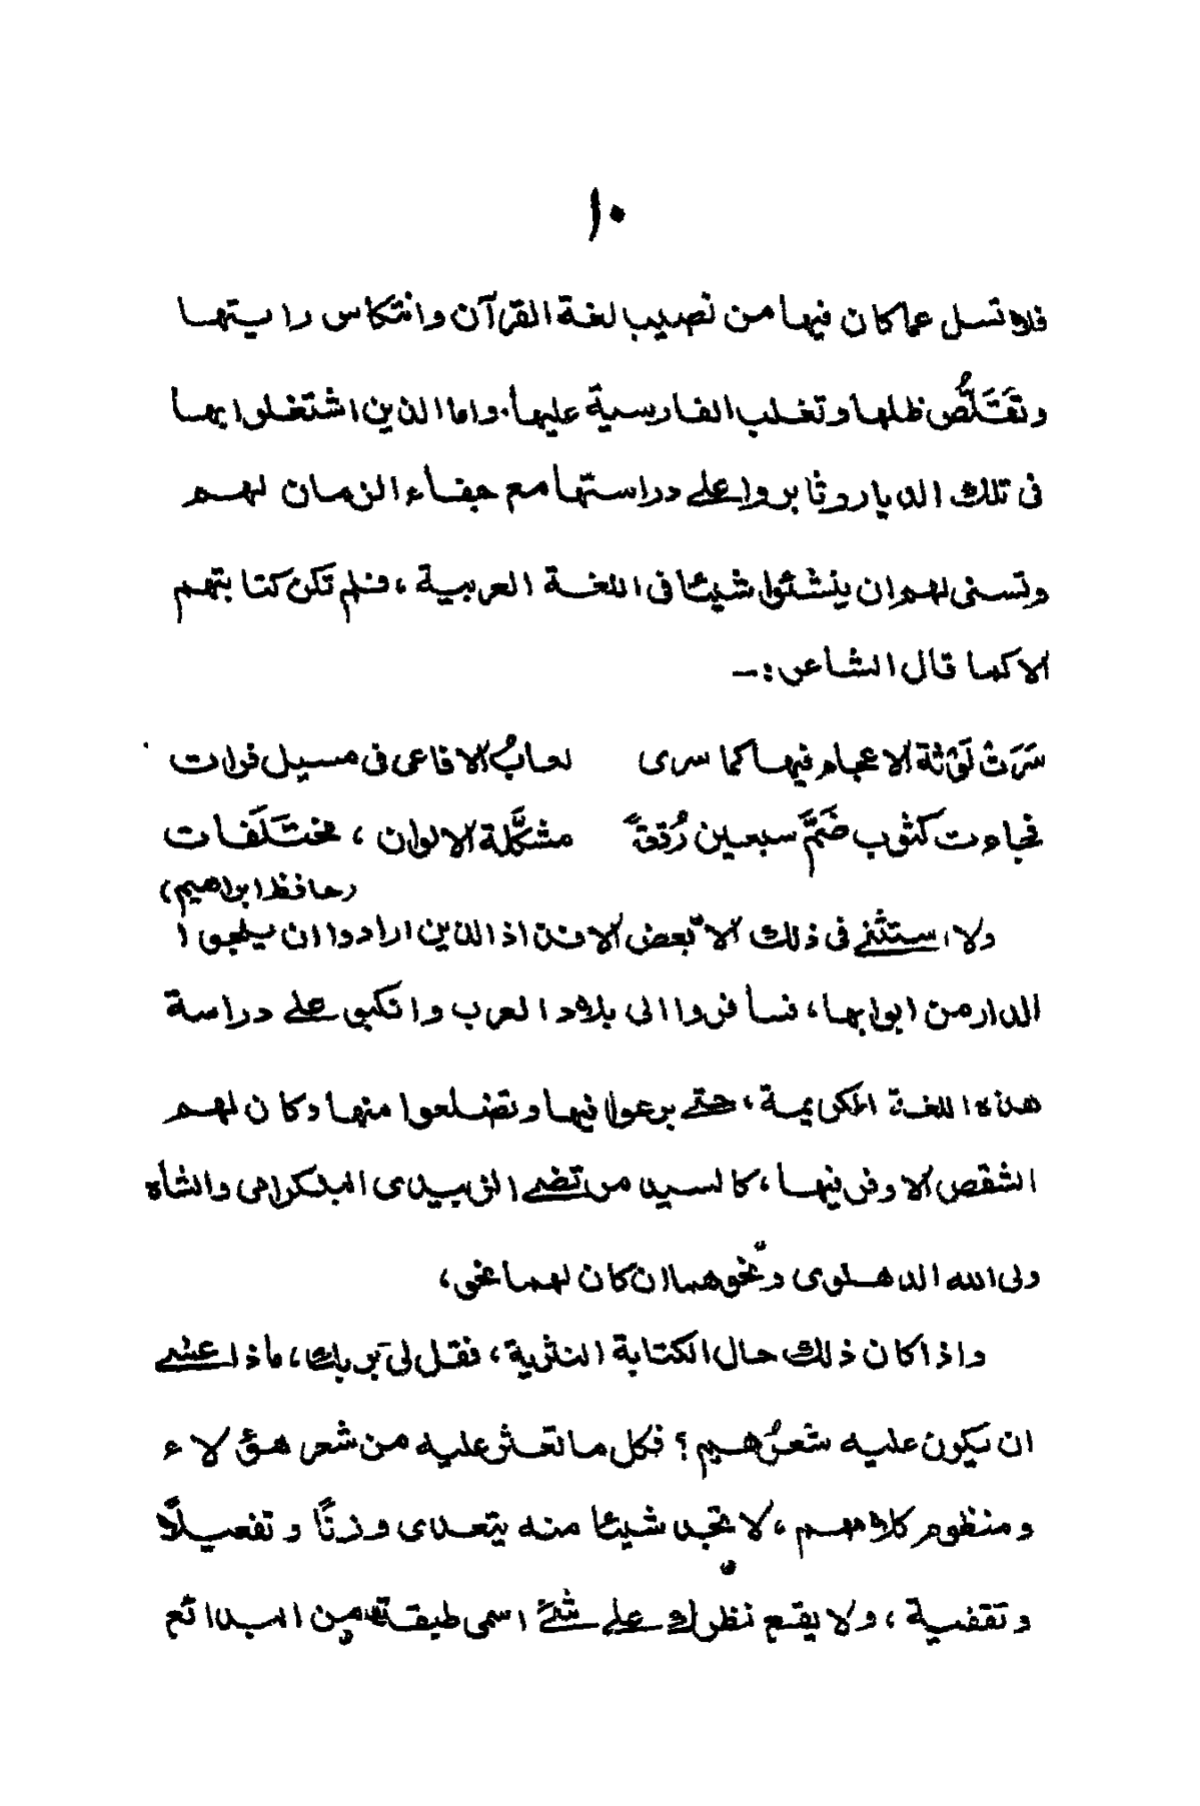 ١٠
فلا تسل عما كان فيها من نصيب لغة القرآن وانتكاس رايتها
وتَقَلُّص ظلها وتغلب الفارسية عليها. واما الذين اشتغلوا بها
فى تلك الديار وثابروا على دراستها مع جفاء الزمان لهم
وتسنى لهم ان ينشئوا شيئا فى اللغة العربية، فلم تكن كتابتهم
الا كما قال الشاعر:—
سَرَتْ لَوْثة الاعجام فيها كما سرى لعابُ الافاعى فى مسيل فرات
فجاءت كثوب ضَمَّ سبعين رُقعةً مشكَّلة الالوان، مختلفات
(حافظ ابراهيم)
ولا استثنى فى ذلك الا بعض الافذاذ الذين ارادوا ان يلجوا
الدار من ابوابها، فسافروا الى بلاد العرب وانكبو على دراسة
هذه اللغة الكريمة، حتى برعوا فيها وتضلعوا منها وكان لهم
الشقص الاوفر فيها، كالسيد مرتضى الزبيدى البلكرامى والشاه
ولى الله الدهلوى ونحوهما ان كان لهما نحو،
واذا كان ذلك حال الكتابة النثرية، فقل لى بربك، ماذا عسى
ان يكون عليه شعرُهم؟ فكل ما تعثر عليه من شعر هؤلاء
ومنظوم كلامهم، لا تجد شيئا منه يتعدى وزنًا وتفعيلًا
وتقفية، ولا يقع نظرك على شئ اسمى طبقة من البدائع